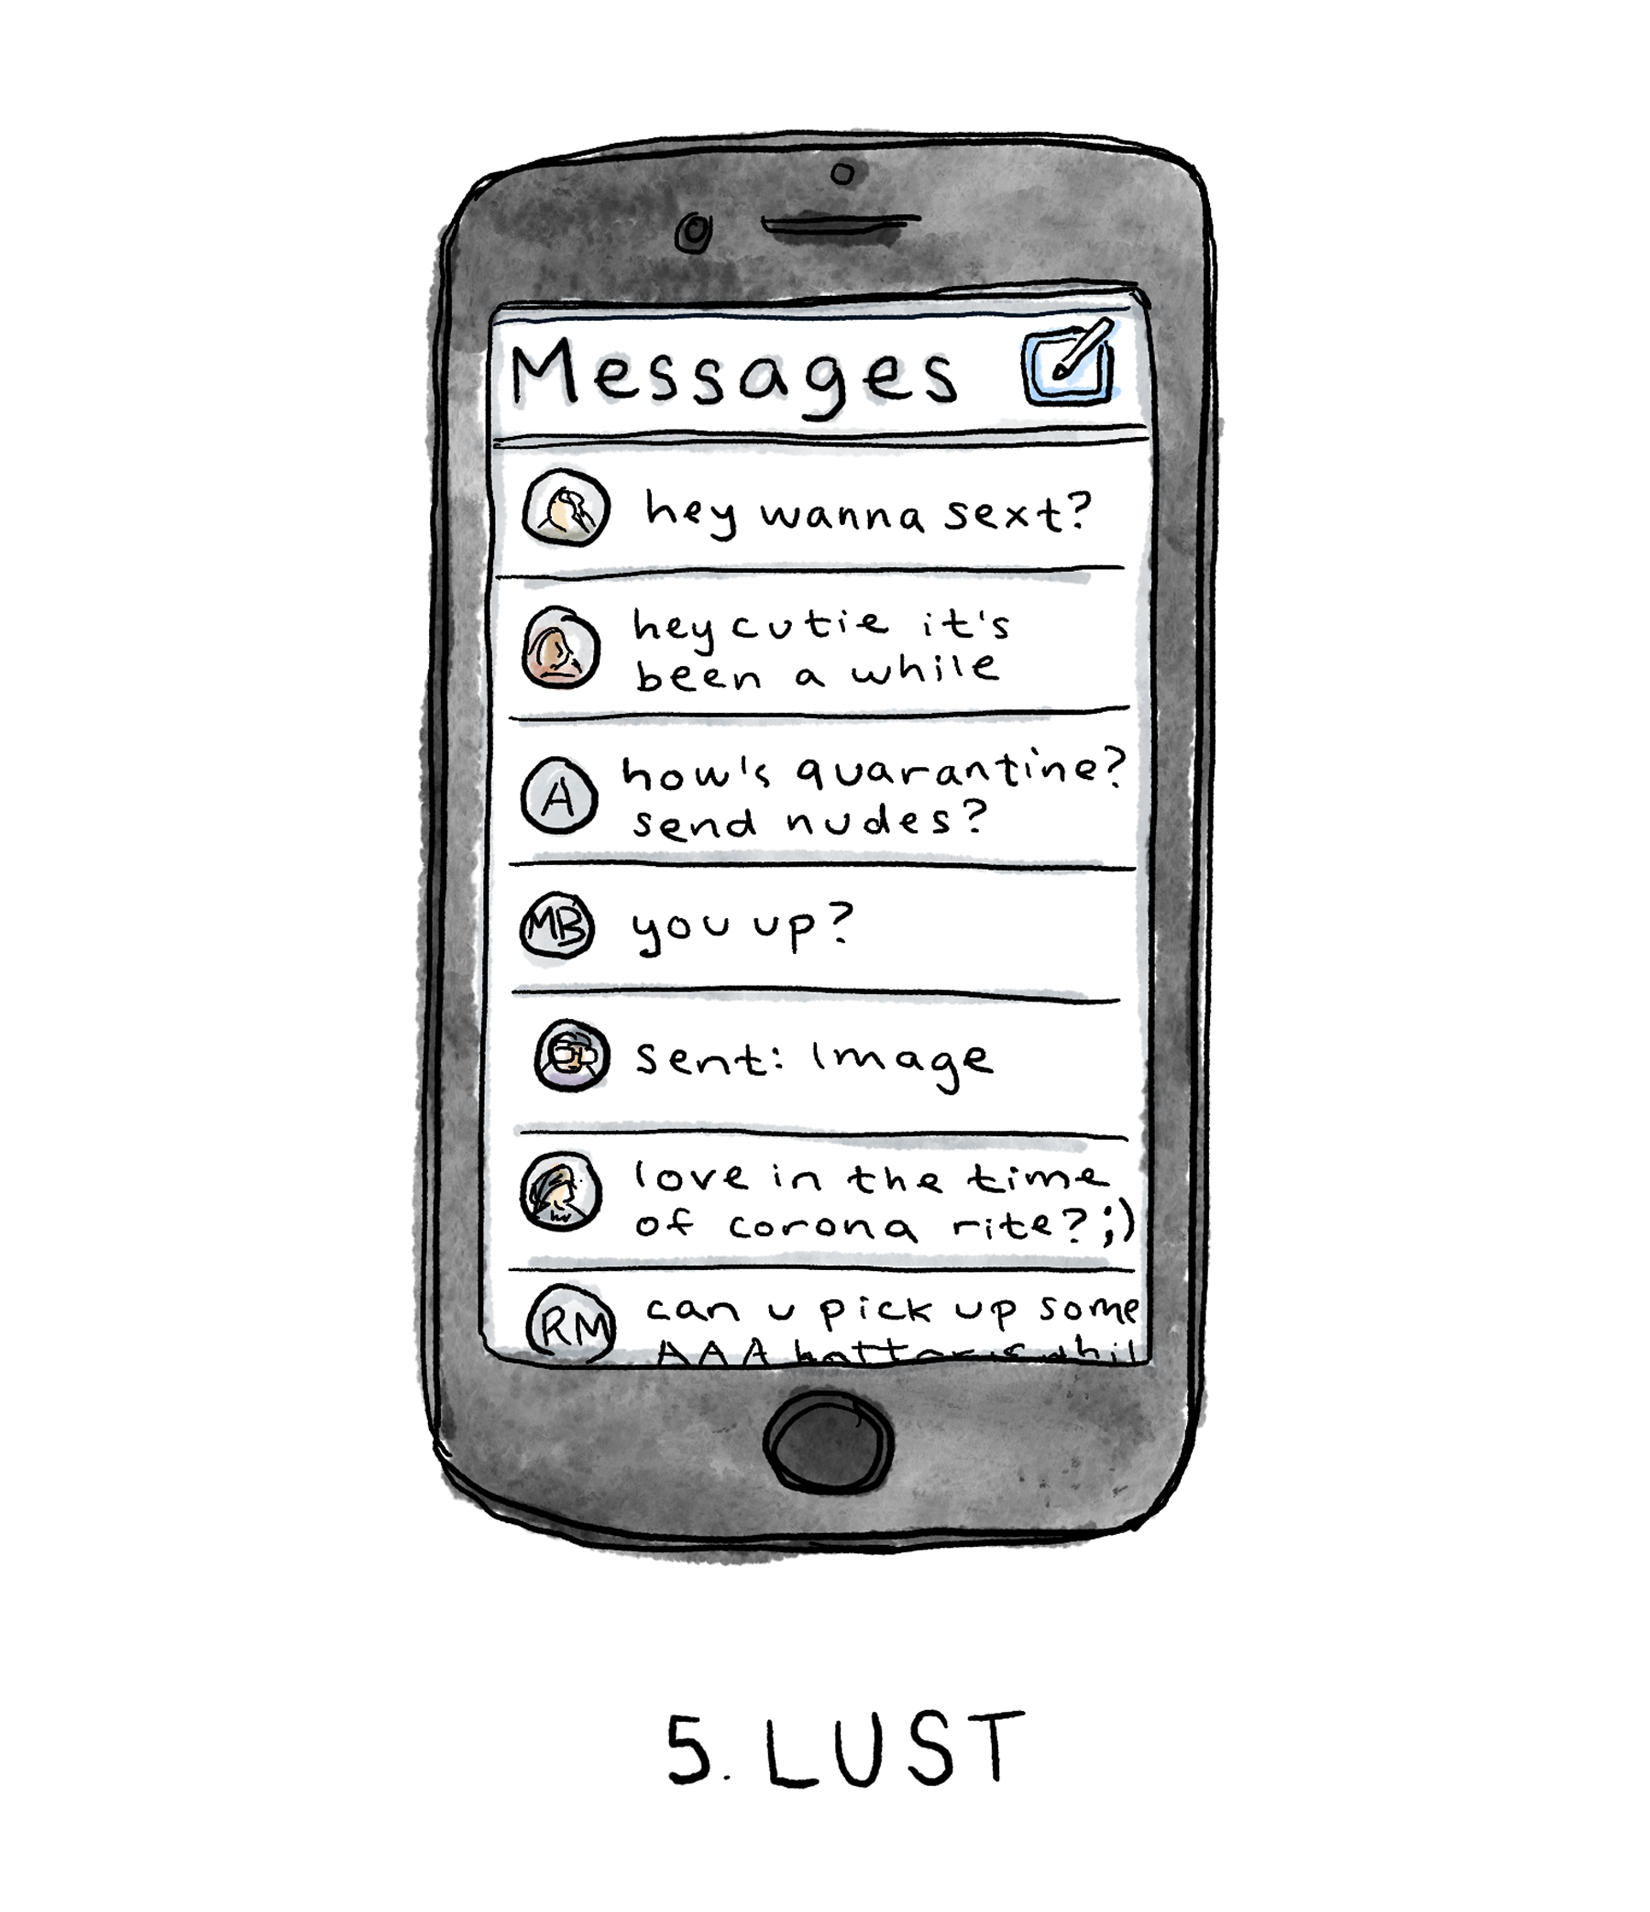 Messages
hey wanna sext?
hey cutie it's
been a while
A
how's quarantine?
send nudes?
MB
you up?
sent: Image
love in the time
of corona rite? ;)
RM
can u pick up some
AAA
5. LUST